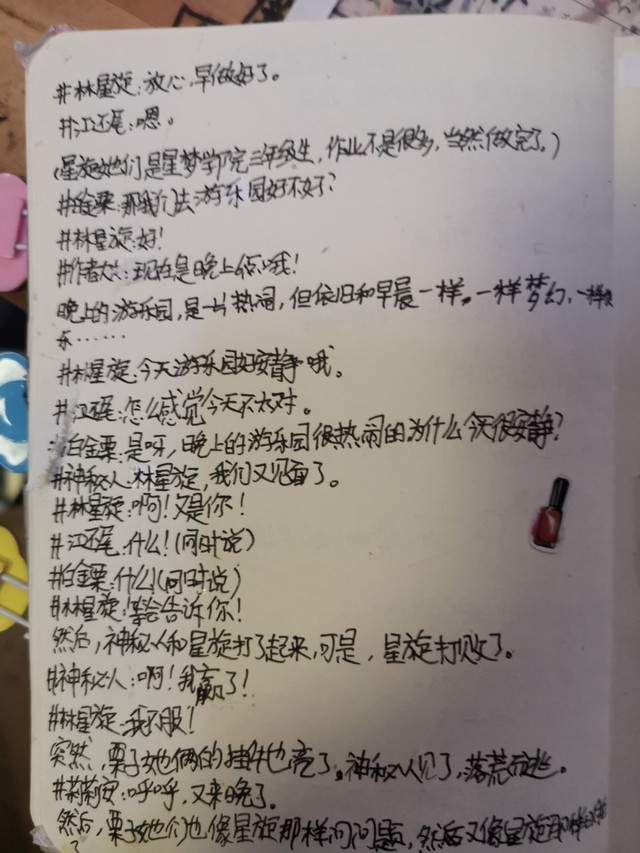 #林星旋:放心,早做好了。
#江还尾:嗯。
(星旋她们是星梦学院三年级生,作业不是很多,当然做完了。)
#白金栗:那我们去游乐园好不好?
#林星旋:好!
#作者大大:现在是晚上ㅤ哦!
晚上的游乐园,是一片热闹,但依旧和早晨一样,一样梦幻,一样快
乐……
#林星旋:今天游乐园好安静哦。
#江还尾:怎么感觉今天不太对。
#白金栗:是呀,晚上的游乐园很热闹的为什么今天很安静?
#神秘人:林星旋,我们又见面了。
#林星旋:啊!又是你!
#江还尾:什么!(同时说)
#白金栗:什么!(同时说)
#林星旋:等会告诉你!
然后,神秘人和星旋打了起来,可是,星旋打败了。
#神秘人:啊!我赢了!
#林星旋:我不服!
突然,栗子她俩的挂件也亮了。神秘人见了,落荒而逃。
#莉莉安:呼呼,又来晚了。
然后,栗子她们也像星旋那样问问题,然后又像星旋
了